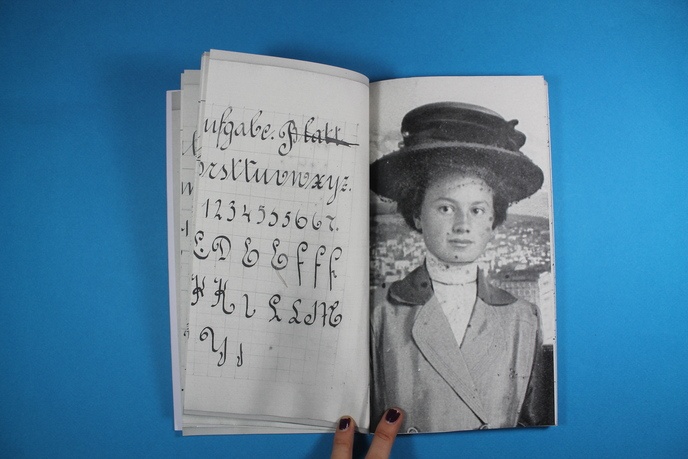 ufgabe. Blatt
rsttuvwxyz.
1 2 3 4 5 5 5 6 6 7.
L D E E f f f
K K l L L M
Y